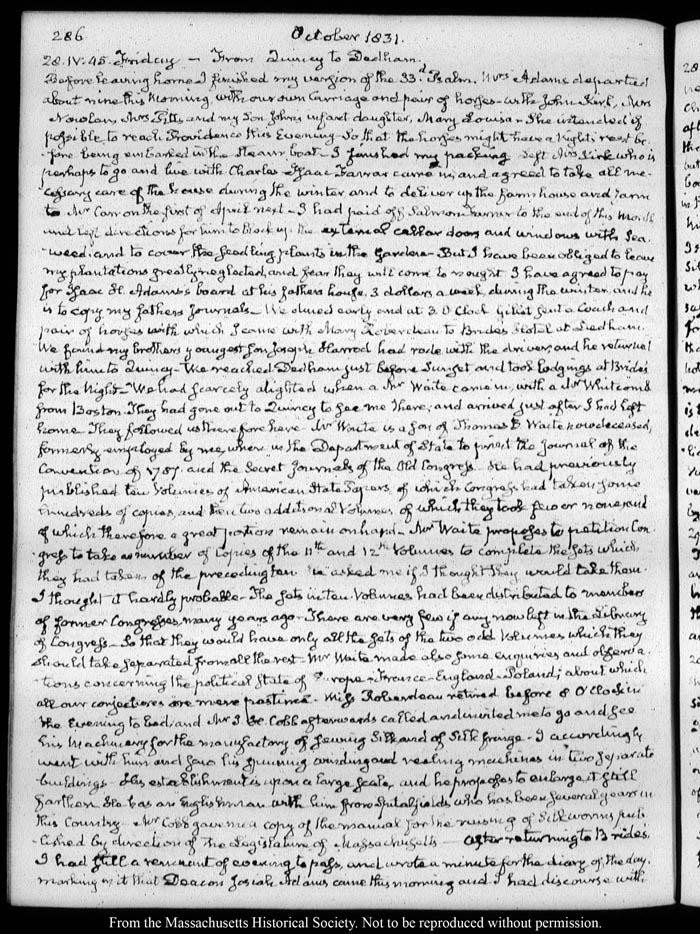 286
October 1831.
28. IV: 45. Friday — From Quincy to Dedham.
Before leaving home I finished my version of the 33d Psalm. Mrs Adams departed
about nine this Morning, with our own Carriage and pair of horses - with John Kirk, Mrs
Nowlan, Mrs and my Son John's infant daughter, Mary Louisa - She intended if
possible to reach Providence this Evening - So that the horses might have a Night's rest be-
fore being embarked in the Steam boat - I finished my packing left Mrs Kirk who is
perhaps to go and live with Charles - Isaac Farrar came in, and agreed to take all ne-
cessary care of the House during the winter and to deliver up the farm house and farm
to Mr Carr on the first of April next - I had paid off Salmon Farrar to the end of this Month
and left directions for him to block up the external cellar doors and windows with Sea-
weed, and to cover the Seedling plants in the Garden - But I have been obliged to leave
my plantations greatly neglected, and fear they will come to nought I have agreed to pay
for Isaac H. Adams's board at his father's house, 3 dollars a week during the winter, and he
is to copy my father's Journals - We dined early and at 3 O'Clock Gillet sent a Coach and
pair of horses with which I came with Mary Roberdeau to Brides Hotel at Dedham.
We found my brother's youngest Son Joseph Harrod had rode with the driver, and he returned
with him to Quincy - We reached Dedham just before Sunset and took lodgings at Brides
for the Night - We had scarcely alighted when a Mr Waite came in, with a Mr Whitcomb
from Boston. They had gone out to Quincy to see me there, and arrived just after I had left
home - They followed us therefore here - Mr Waite is a Son of Thomas B. Waite now deceased,
formerly employed by me, when in the Department of State to print the Journal of the
Convention of 1787. and the Secret Journals of the Old Congress - He had previously
published ten Volumes of American State Papers, of which Congress had taken some
hundreds of copies, and then two additional Volumes of which they took few or none and
of which therefore a great portion remain on hand - Mr Waite proposes to petition Con-
gress to take a number of Copies of the 11th and 12th Volumes to complete the Sets which
they had taken of the preceding ten He asked me if I thought they would take them.
I thought it hardly probable - The Sets in ten Volumes had been distributed to members
of former Congresses many years ago - There are very few if any now left in the Library
of Congress - So that they would have only all the Sets of the two odd Volumes which they
should take separated from all the rest - Mr Waite made also some enquiries and observa-
tions concerning the political State of Europe - France - England - Poland; about which
all our conjectures are mere pastime. Miss Roberdeau retired before 8 O'Clock in
the Evening to bed; and Mr J. H. Cobb afterwards called and invited me to go and see
his Machinery for the manufactory of Sewing Silk and of Silk fringe - I accordingly
went with him and saw his spinning winding and reeling machines in two separate
buildings - His establishment is upon a large Scale, and he proposes to enlarge it still
farther. He has an Englishman with him from Spitalfields who has been several years in
this Country - Mr Cobb gave me a copy of the manual for the raising of Silk worms pub-
lished by direction of the Legislature of Massachusetts — After returning to Brides,
I had still a remnant of evening to pass, and wrote a minute for the diary of the day,
marking in it that Deacon Josiah Adams came this morning and I had discourse with
From the Massachusetts Historical Society. Not to be reproduced without permission.